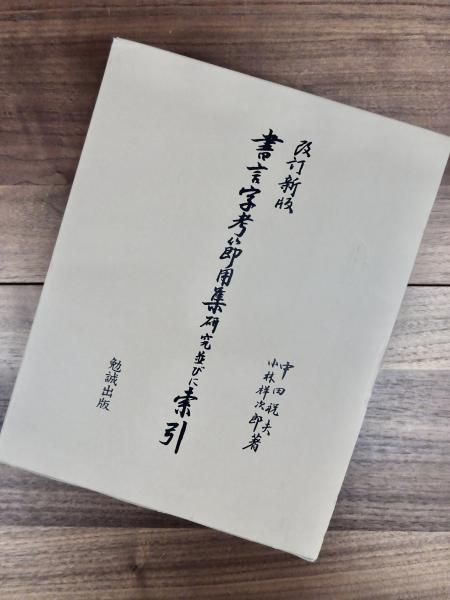 改訂新版
書言字考節用集研究並びに索引
中田祝夫
小林祥次郎著
勉誠出版